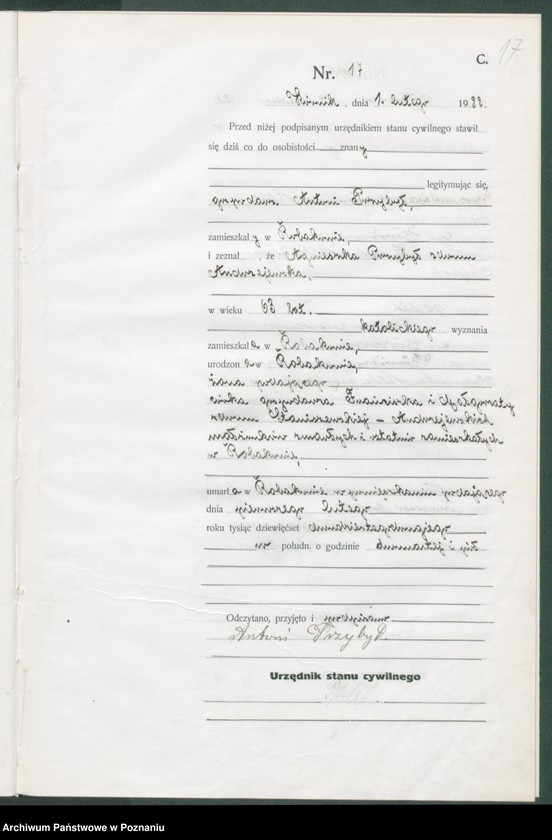 C. 17
Nr. 17
Kórnik, dnia 1. lutego 1922.
Przed niżej podpisanym urzędnikiem stanu cywilnego stawił
się dziś co do osobistości znany
legitymując się,
gospodarz Antoni Przybył,
zamieszkały w Robakowie,
i zeznał, że Agnieszka Przybył z domu
Andrzejewska,
w wieku 63 lat,
katolickiego wyznania
zamieszkała w Robakowie,
urodzona w Robakowie,
żona podającego,
córka gospodarza Franciszka i Małgorzaty
z domu Staniszewskiej – Andrzejewskich
małżonków zmarłych i ostatnio zamieszkałych
w Robakowie,
umarła w Robakowie w pomieszkaniu podającego
dnia pierwszego lutego
roku tysiąc dziewięćset dwudziestegodrugiego
w połudn. o godzinie dwunastej i pół
Odczytano, przyjęto i podpisano
Antoni Przybył
Urzędnik stanu cywilnego
Archiwum Państwowe w Poznaniu